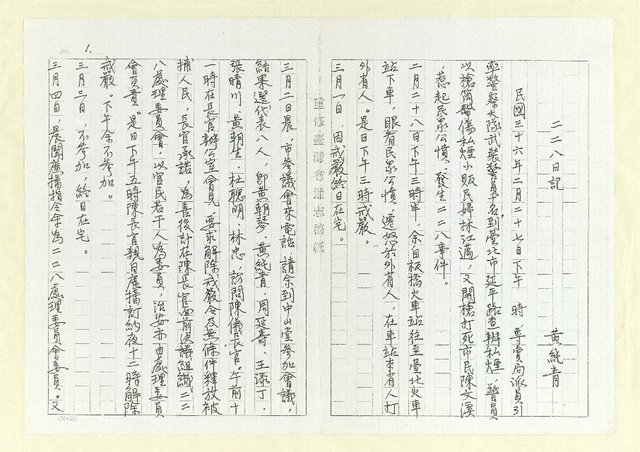 二二八日記
黃純青
民國三十六年二月二十七日下午 時 專賣局派員引
率警察大隊武裝警員十名到臺北市延平路查辦私煙、警員
以槍管擊傷私煙小販民婦林江邁，又開槍打死市民陳文溪
，惹起民眾公憤，發生二二八事件。
二月二十八日下午三時半，余自板橋火車站往至臺北火車
站下車，眼看民眾公憤，遷怒於外省人，在車站亦有人打
外省人。是日下午三時戒嚴。
三月一日，因戒嚴終日在宅。
重修臺灣省通志稿紙
三月二日晨，市參議會來電話，請余到中山堂參加會議，
結果選代表八人，即黃朝琴、黃純青、周延壽、王添丁、
張晴川、黃朝生、杜聰明、林忠，訪問陳儀長官。午前十
一時在長官辦公室會見，要求解除戒嚴令及無條件釋放被
捕人民，長官承諾，為善後計在陳長官面前決議組織二二
八處理委員會，以官民若干人為委員，治安亦由處理委員
會負責，是日下午五時陳長官親自廣播訂約夜十二時解除
戒嚴。下午余不參加。
三月三日，不參加，終日在宅。
三月四日，晨聞廣播指令余為二二八處理委員會委員。又
1.